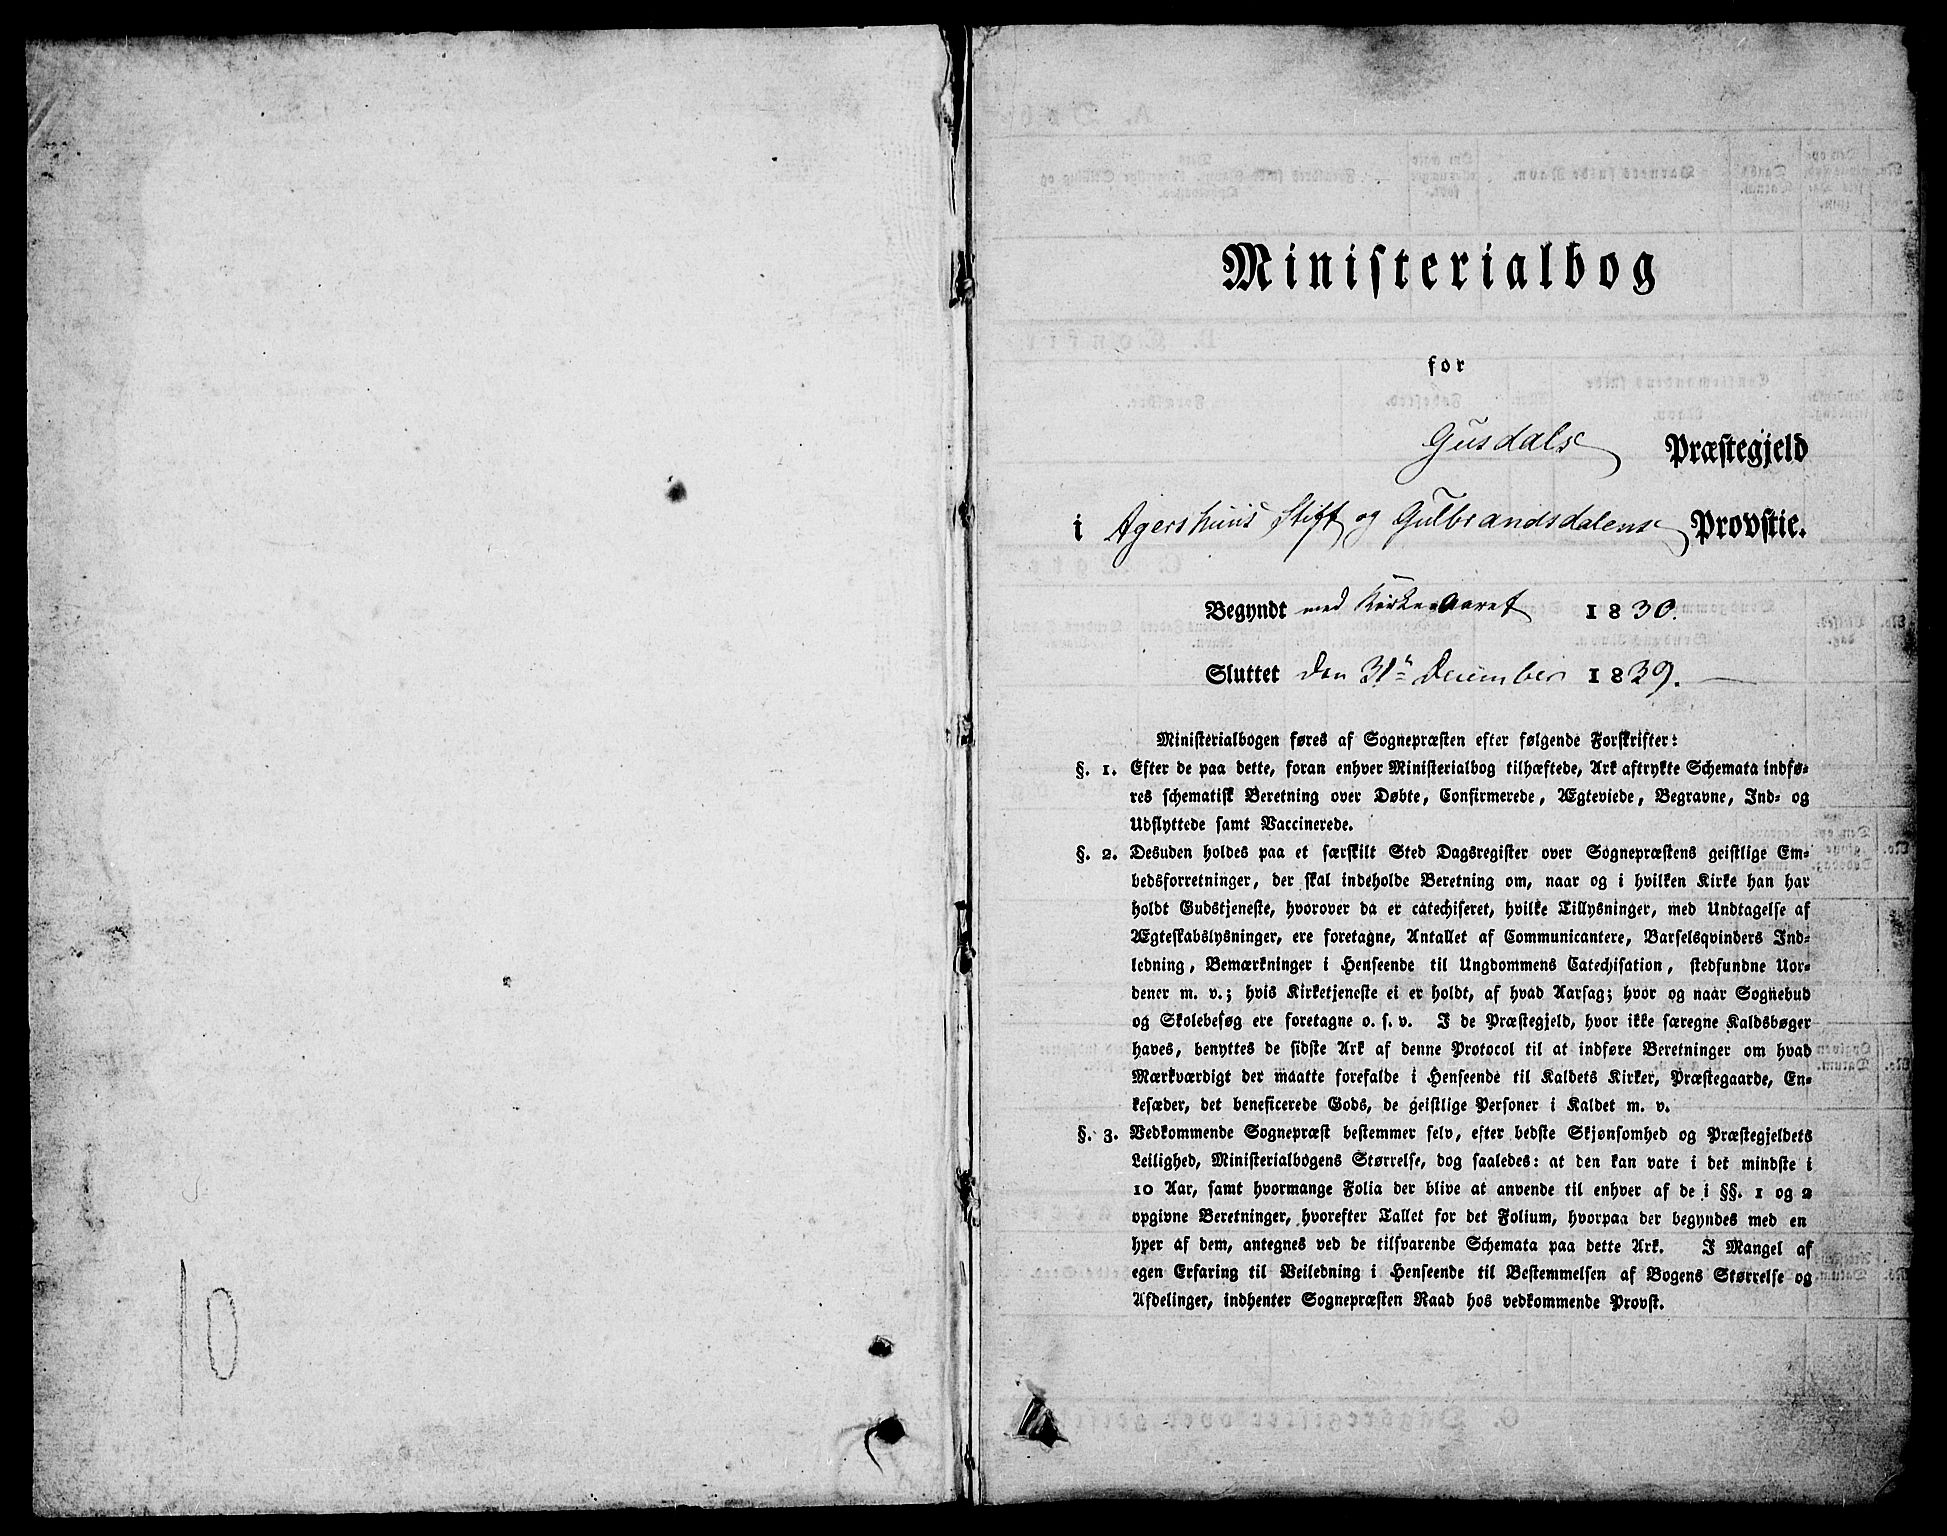 10
Ministerialbog
for
Gusdals Præstegjeld
i Agershuus Stift og Gulbrandsdalens Provstie.
Begyndt med Kirke-Aaret 1830.
Sluttet den 31te December 1839.
Ministerialbogen føres af Sognepræsten efter følgende Forskrifter:
§. 1. Efter de paa dette, foran enhver Ministerialbog tilhæftede, Ark aftrykte Schemata indfø-
res schematisk Beretning over Døbte, Confirmerede, Ægteviede, Begravne, Ind- og
Udflyttede samt Vaccinerede.
§. 2. Desuden holdes paa et særskilt Sted Dagsregister over Sognepræstens geistlige Em-
bedsforretninger, der skal indeholde Beretning om, naar og i hvilken Kirke han har
holdt Gudstjeneste, hvorover da er catechiseret, hvilke Tillysninger, med Undtagelse af
Ægteskabslysninger, ere foretagne, Antallet af Communicantere, Barselsqvinders Ind-
ledning, Bemærkninger i Henseende til Ungdommens Catechisation, stedfundne Uor-
dener m. v.; hvis Kirketjeneste ei er holdt, af hvad Aarsag; hvor og naar Sognebud
og Skolebesøg ere foretagne o. s. v. I de Præstegjeld, hvor ikke særegne Kaldsbøger
haves, benyttes de sidste Ark af denne Protocol til at indføre Beretninger om hvad
Mærkværdigt der maatte forefalde i Henseende til Kaldets Kirker, Præstegaarde, En-
kesæder, det beneficerede Gods, de geistlige Personer i Kaldet m. v.
§. 3. Vedkommende Sognepræst bestemmer selv, efter bedste Skjønsomhed og Præstegjeldets
Leilighed, Ministerialbogens Størrelse, dog saaledes: at den kan vare i det mindste i
10 Aar, samt hvormange Folia der blive at anvende til enhver af de i §§. 1 og 2
opgivne Beretninger, hvorefter Tallet for det Folium, hvorpaa der begyndes med en
hver af dem, antegnes ved de tilsvarende Schemata paa dette Ark. I Mangel af
egen Erfaring til Veiledning i Henseende til Bestemmelsen af Bogens Størrelse og
Afdelinger, indhenter Sognepræsten Raad hos vedkommende Provst.